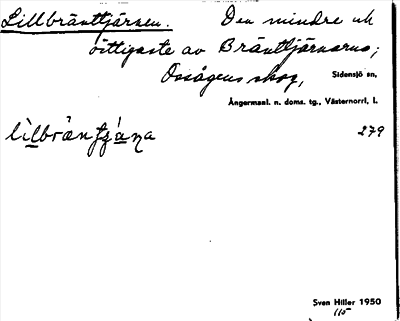 Lillbränttjärnen. Den mindre ok
östligaste av Bränttjärnarna;
Ossågens skog, Sidensjö sn,
Ångermanl. n. doms. tg., Västernorrl. l.
279
Sven Hiller 1950
115